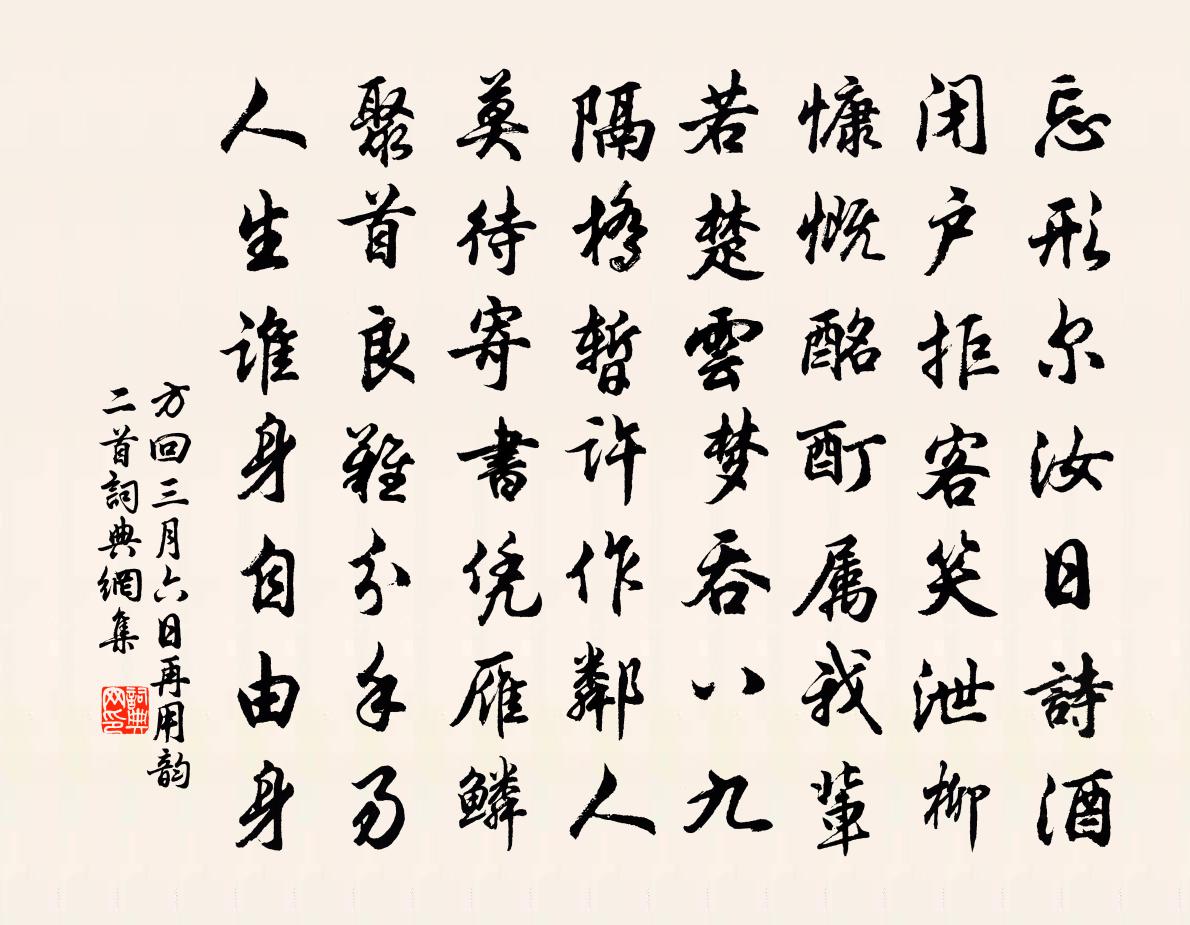 忘形尔汝日詩酒
闭户拒客笑泄柳
慷慨酩酊属我輩
若楚雲梦吞八九
隔橋暫许作鄰人
莫待寄書凭雁鳞
聚首良難分手易
人生谁身自由身
方回三月六日再用韵
二首詞典網集
詞典
网印